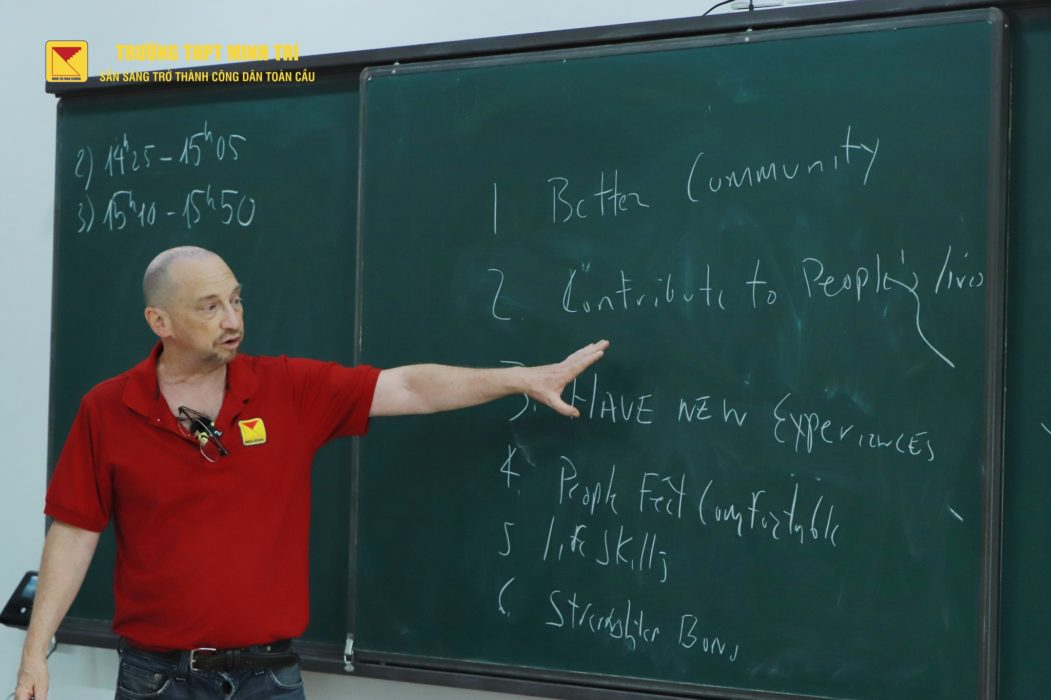 TRƯỜNG THPT MINH TRÍ
SẴN SÀNG TRỞ THÀNH CÔNG DÂN TOÀN CẦU
2) 14h25 - 15h05
3) 15h10 - 15h50
1 Better Community
2. Contribute to People's lives
3. HAVE NEW Experiences
4. People Feel Comfortable
5 life skills
6.